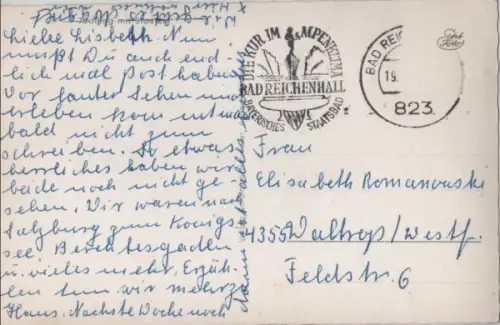 Liebe Lisbeth. Nun
mußt Du auch end-
lich mal Post haben.
Vor lauter Sehen und
Erleben kom mt man
bald nicht zum
schreiben. So etwas
herrliches haben wir
beide noch nicht ge-
sehen. Wir waren nach
Salzburg zum Königs-
see, Berchtesgaden
u. vieles mehr. Erzäh-
len tun wir mehr zu
Haus. Nächste Woche noch
dann ist alles
DIE KUR IM ALPENKLIMA
BAD REICHENHALL
BAYERISCHES STAATSBAD
BAD REIC
19.
823
Frau
Elisabeth Romanowski
4355 Waltrop/Westf.
Feldstr. 6